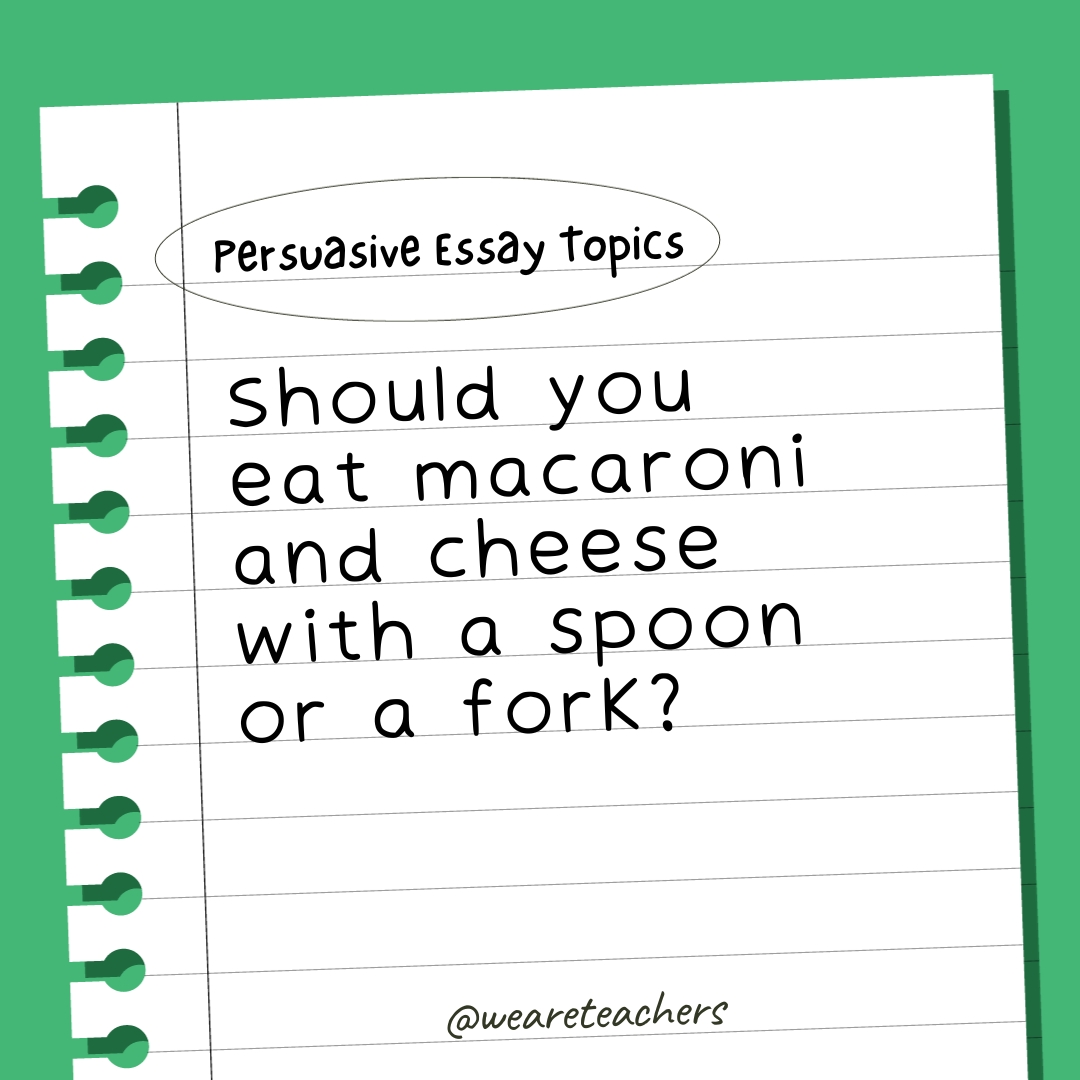 Persuasive Essay Topics
Should you
eat macaroni
and cheese
with a spoon
or a fork?
@weareteachers